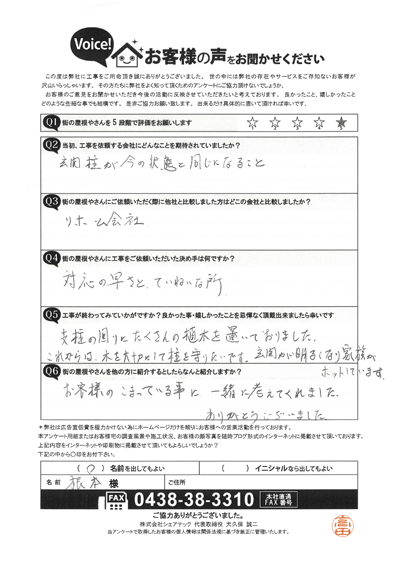 Voice!
お客様の声をお聞かせください
この度は弊社に工事をご用命頂き誠にありがとうございました。世の中には弊社の存在やサービスをご存知ないお客様が
沢山いらっしゃいます。その方たちに弊社をよく知って頂くためのアンケートにご協力頂けないでしょうか。
お客様のご意見をお聞かせいただき今後の活動に反映させていただきたいと考えております。良かったこと、嬉しかったこと
どのような些細な事でも結構です。是非ご協力お願い致します。出来るだけ具体的に書いて頂ければ幸いです。
Q1 街の屋根やさんを5段階で評価をお願いします ☆ ☆ ☆ ☆ ★
Q2 当初、工事を依頼する会社にどんなことを期待されていましたか?
玄関柱が今の状態と同じになること
Q3 街の屋根やさんにご依頼いただく際に他社と比較しました方はどこの会社と比較しましたか?
リホーム会社
Q4 街の屋根やさんに工事をご依頼いただいた決め手は何ですか?
対応の早さと、ていねいな所
Q5 工事が終わってみていかがですか?良かった事・嬉しかったことを忌憚なく頂戴出来ましたら幸いです
支柱の回りにたくさんの植木を置いておりました。
これからは、水を大切にして柱を守りたいです。玄関が明るくなり家族が
ホットしています。
Q6 街の屋根やさんを他の方に紹介するとしたらなんと紹介しますか?
お客様のこまっている事に一緒に考えてくれました。
ありがとうございました。
*弊社は広告宣伝費を極力かけない為にホームページだけを頼りにお客様への営業活動を行っております。
本アンケート用紙またはお客様宅の調査風景や施工状況、お客様の顔写真を随時ブログ形式のインターネットに掲載させて頂いております。
上記内容をインターネットや印刷物に掲載させて頂いてもよろしいでしょうか?
下記の中から○印をお付下さい。
(○)名前を出してもよい ( )イニシャルなら出してもよい
名前 根本 様 ご住所
FAX 0438-38-3310 本社直通 FAX番号
ご協力ありがとうございました。
株式会社シェアテック 代表取締役 大久保 誠二
当アンケートで取得したお客様の個人情報は関係法規に基づき厳正に管理いたします。